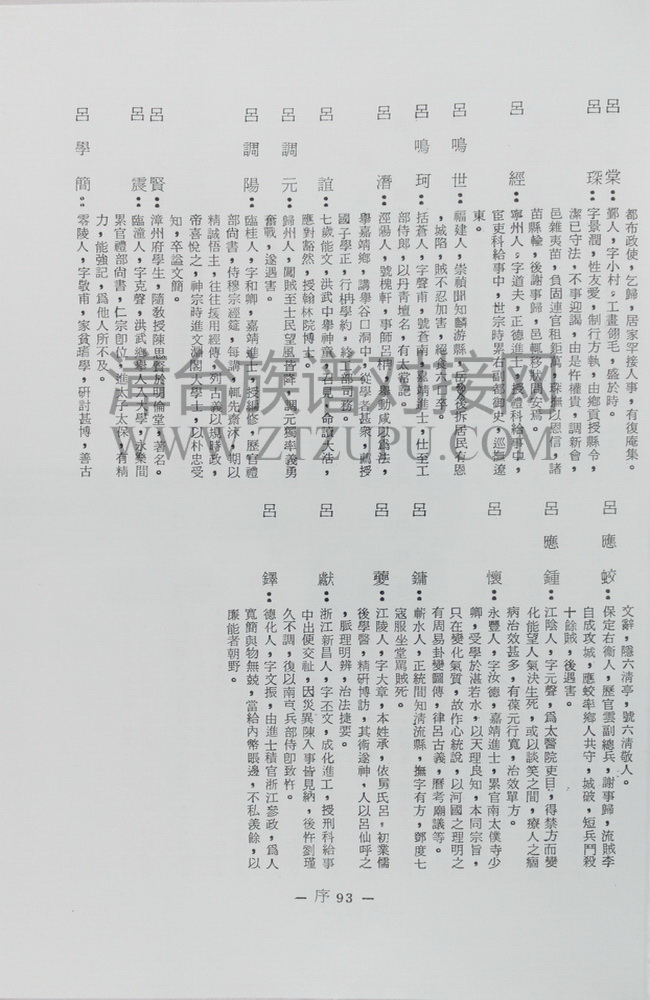 都布政使，乞歸，居家罕接人事，有復庵集。
呂棠：鄞人，字小村，工畫翎毛，盛於時。
呂琛：字景潤，性友愛，制行方執，由鄉貢授縣令，
潔已守法，不事迎謁，由是忤權貴，調新會，
邑雜夷苗，負固連官租鉅萬，琛撫以恩信，諸
苗縣輸，後謝事歸，邑輒移獄問安焉。
呂經：寧州人，字道夫，正德進士，授禮科給事中，
宦吏科給事中，世宗時累右副都御史，巡撫遼
東。
呂鳴世：福建人，崇禎間知麟游縣，
，城陷，賊不忍加害，絕食六七卒。
呂鳴珂：括蒼人，字聲甫，號蒼南，嘉靖進士，仕至工
部侍郎，以丹青壇名，有太常記。
呂潛：涇陽人，號槐軒，事師呂柟，舉動咸以為法，
舉嘉靖鄉，講學谷口洞中，從學者甚衆，薦授
國子學正，行柟學約，終工部司務。
呂誼：七歲能文，洪武中舉神童，召見，命讀大誥，
應對豁然，授翰林院博士。
呂調元：歸州人，闖賊至士民望風皆降，調元獨率義勇
奮戰，遂遇害。
呂調陽：臨桂人，字和卿，嘉靖進士，授編修，歷官禮
部尚書，侍穆宗經筵，每講，輒先齋沐，期以
精誠悟主，往往援用經傳，列古義以規時政，
帝喜悅之，神宗時進文淵閣大學士，以朴忠受
知，卒謚文簡。
呂賢：漳州府學生，隨敎授陳思賢於明倫堂，著名。
呂震：臨潼人，字克聲，洪武鄉舉人入大學，永樂間
累官禮部尚書，仁宗卽位，進太子太保，有精
力，能強記，爲他人所不及。
呂學簡：零陵人，字敬甫，家貧績學，研討甚博，善古
文辭，隱六清亭，號六清敬人。
呂應蛟：保定右衞人，歷官雲副總兵，謝事歸，流賊李
自成攻城，應蛟率鄉人共守，城破，短兵鬥殺
十餘賊，後遇害。
呂應鍾：江陰人，字元聲，爲太醫院吏目，得禁方而變
化能望人氣決生死，或以談笑之間，療人之痼
病治效甚多，有葆元行寬，治效單方。
呂懷：永豐人，字汝德，嘉靖進士，累官南太僕寺少
卿，受學於湛若水，以天理良知，本同宗旨，
只在變化氣質，故作心統說，以河國之理明之
有周易卦變圖傳，律呂古義，曆考廟議等。
呂鏞：蘄水人，正統間知清流縣，撫字有方，鄧度七
寇服坐堂罵賊死。
呂夔：江陵人，字大章，本姓承，依舅氏呂，初業儒
後學醫，精研博訪，其術遂神，人以呂仙呼之
，脈理明辨，治法捷要。
呂獻：浙江新昌人，字丕文，成化進工，授刑科給事
中出使交祉，因災異陳入事皆見納，後忤劉瑾
久不調，後以南亯兵部侍卽致忤。
呂鐸：德化人，字文振，由進士積官浙江參政，爲人
寬簡與物無兢，當給內幣賬邊，不私羨餘，以
廉能者朝野。
— 序 93 —
臺台族譜对接网
WWW.ZTZUPU.COM